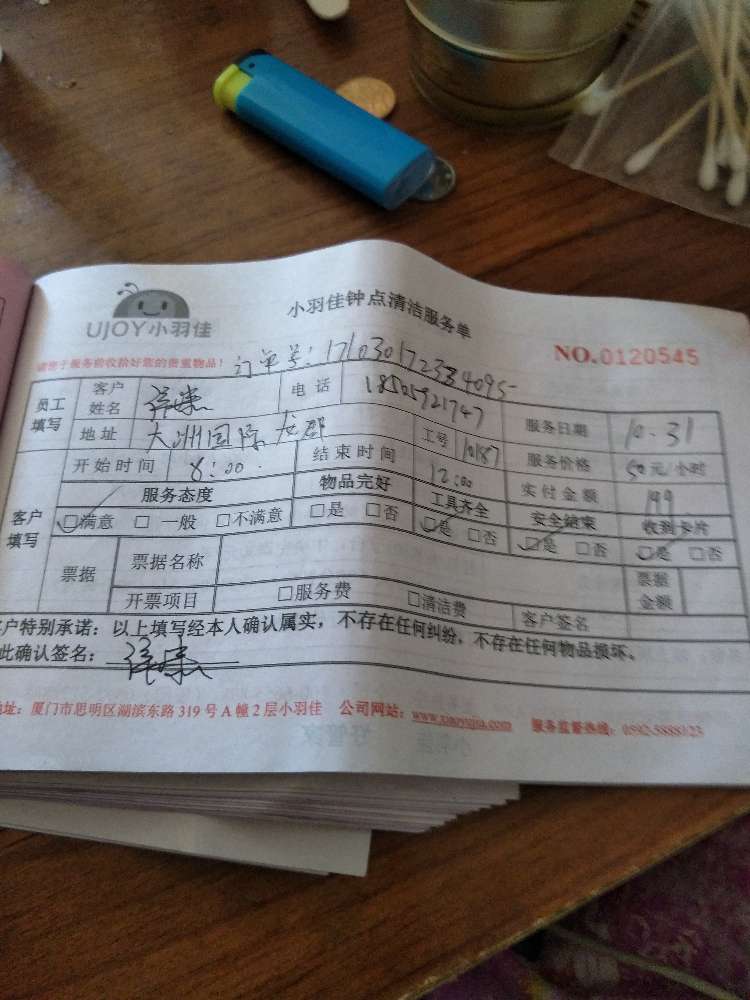 UJOY小羽佳
小羽佳钟点清洁服务单
NO.0120545
请您于服务前收拾好您的贵重物品!
订单号:
员工填写 客户姓名 电话 18505921747 服务日期 10.31
地址 大洲国际龙郡 工号 10187 服务价格 50元/小时
开始时间 8:00 结束时间 12:00 实付金额 199
客户填写 服务态度 物品完好 工具齐全 安全结束 收到卡片
☑满意 □一般 □不满意 □是 □否 ☑是 □否 ☑是 □否 ☑是 □否
票据 票据名称 票据金额
开票项目 □服务费 □清洁费 客户签名
客户特别承诺:以上填写经本人确认属实,不存在任何纠纷,不存在任何物品损坏。
此确认签名:
地址:厦门市思明区湖滨东路319号A幢2层小羽佳 公司网站:www.xiaoyujia.com 服务监督热线:0592-5888123